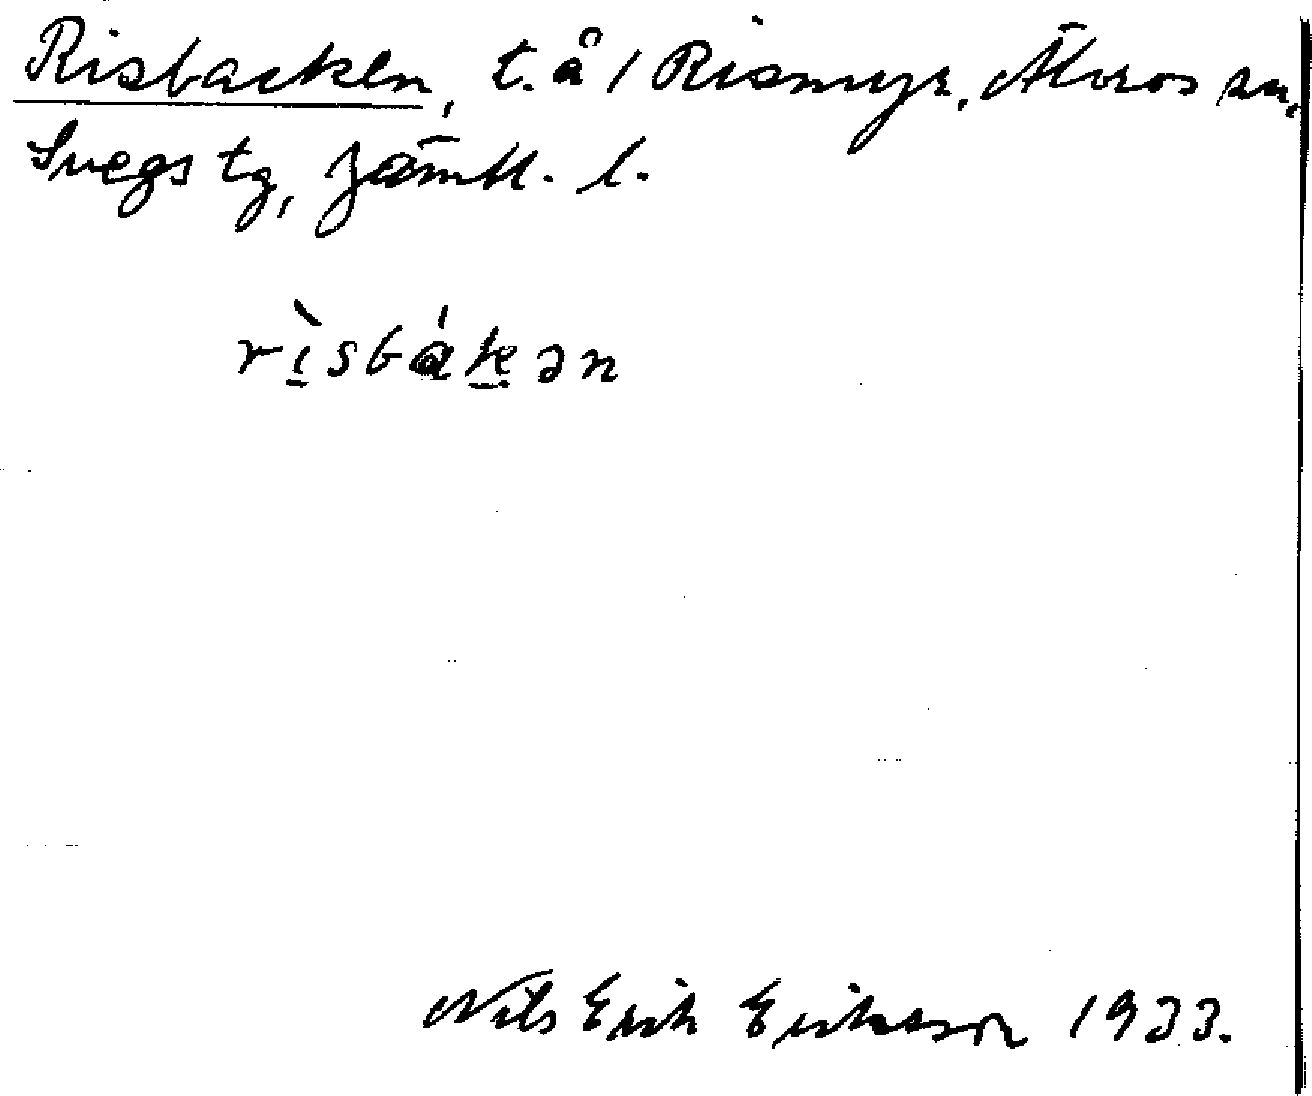 Risbacken, t. å 1 Rismyr, Älvros sn,
Svegs tg, Jämtl. l.
rı̠̀sbák̠ən
Nils Erik Eriksson 1933.